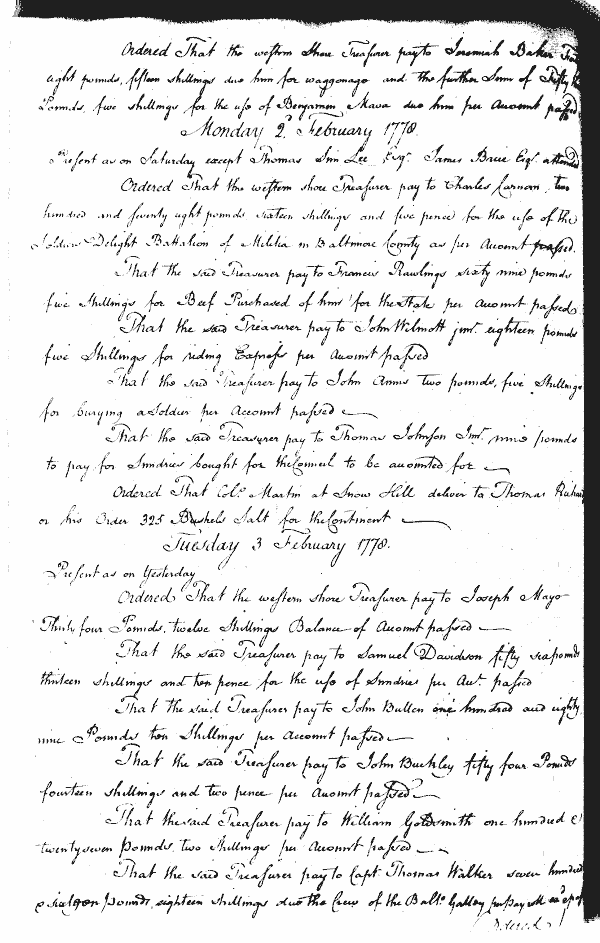 Ordered That the western Shore Treasurer pay to Jeremiah Baker
eight pounds, fifteen shillings due him for waggonage and the further Sum of Fifty
Pounds, five shillings for the use of Benjamin Mava due him per Account passed
Monday 2d. February 1778.
Present as on Saturday except Thomas Sim Lee Esqr. James Brice Esqr. attended
Ordered That the western shore Treasurer pay to Charles Carnan, two
hundred and seventy eight pounds sixteen shillings and five pence for the use of the
Soldiers Delight Battalion of Militia in Baltimore County as per Account passed.
That the said Treasurer pay to Francis Rawlings sixty nine pounds
five Shillings for Beef Purchased of him for the State per Account passed
That the said Treasurer pay to John Wilmott junr. eighteen pounds
five Shillings for riding Express per Account passed
That the said Treasurer pay to John Annis two pounds, five Shillings
for burying a Soldier per Account passed
That the said Treasurer pay to Thomas Johnson Junr. nine pounds
to pay for Sundries bought for the Council to be accounted for
Ordered That Colo. Martin at Snow Hill deliver to Thomas
or his Order 325 Bushels Salt for the Continent
Tuesday 3 February 1778.
Present as on Yesterday
Ordered That the western shore Treasurer pay to Joseph Mayo
Thirty four Pounds, twelve Shillings Balance of Account passed
That the said Treasurer pay to Samuel Davidson fifty six pounds
thirteen shillings and ten pence for the use of Sundries per Act. passed
That the said Treasurer pay to John Bullen one hundred and eighty
nine Pounds ten Shillings per Account passed
That the said Treasurer pay to John Buckley fifty four Pounds
fourteen shillings and two pence per Account passed
That the said Treasurer pay to William Goldsmith one hundred &
twenty seven Pounds, two Shillings per Account passed
That the said Treasurer pay to Capt Thomas Walker seven hundred
& sixteen pounds, eighteen shillings due the Crew of the Balto. Galley per Pay
Ordered